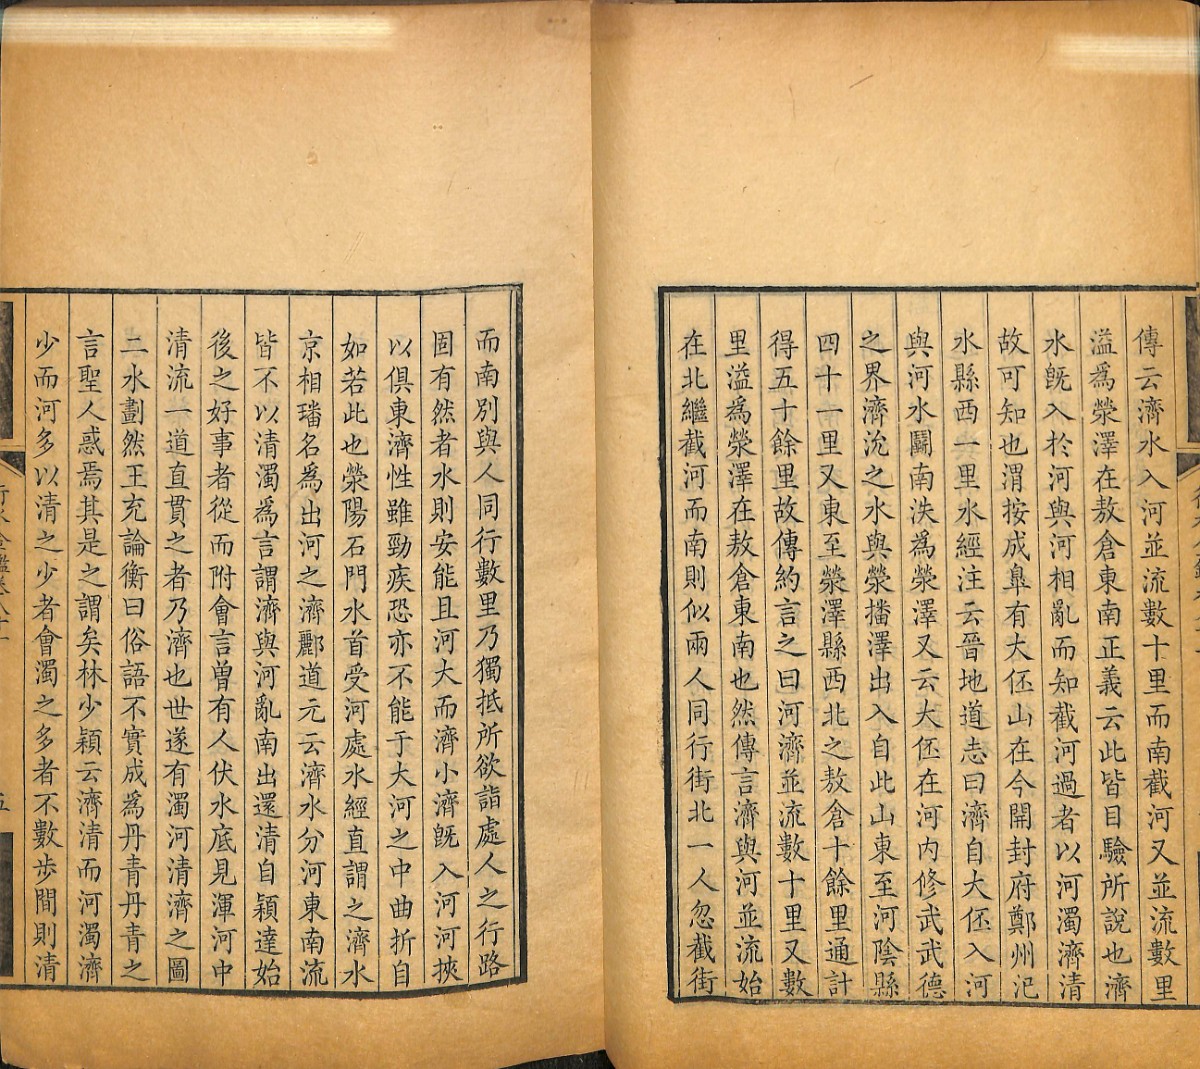 傳云濟水入河並流數十里而南截河又並流數里
溢爲滎澤在敖倉東南正義云此皆目驗所說也濟
水旣入於河與河相亂而知截河過者以河濁濟清
故可知也渭按成臯有大伾山在今開封府鄭州汜
水縣西一里水經注云晉地道志曰濟自大伾入河
與河水鬬南泆爲滎澤又云大伾在河內修武武德
之界濟沇之水與滎播澤出入自此山東至河陰縣
四十一里又東至滎澤縣西北之敖倉十餘里通計
得五十餘里故傳約言之曰河濟並流數十里又數
里溢爲滎澤在敖倉東南也然傳言濟與河並流始
在北繼截河而南則似兩人同行街北一人忽截街
而南別與人同行數里乃獨抵所欲詣處人之行路
固有然者水則安能且河大而濟小濟旣入河河挾
以俱東濟性雖勁疾恐亦不能于大河之中曲折自
如若此也滎陽石門水首受河處水經直謂之濟水
京相璠名爲出河之濟酈道元云濟水分河東南流
皆不以清濁爲言謂濟與河亂南出還清自穎達始
後之好事者從而附會言曾有人伏水底見渾河中
清流一道直貫之者乃濟也世遂有濁河清濟之圖
二水劃然王充論衡曰俗語不實成爲丹青丹青之
言聖人惑焉其是之謂矣林少穎云濟清而河濁濟
少而河多以清之少者會濁之多者不數步間則清
行水金鑑卷八十
五